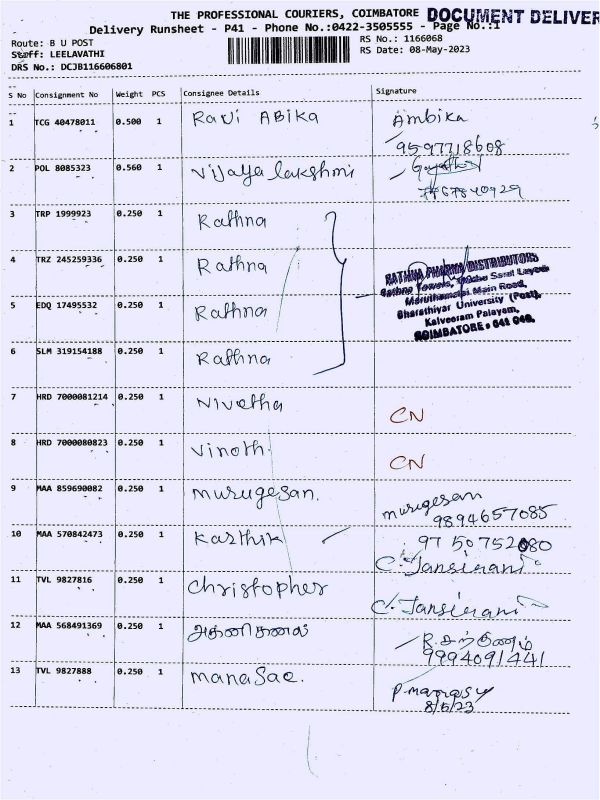 THE PROFESSIONAL COURIERS, COIMBATORE DOCUMENT DELIVER
Delivery Runsheet - P41 - Phone No.:0422-3505555 - Page No.:1
Route: B U POST
RS No.: 1166068
Staff: LEELAVATHI
RS Date: 08-May-2023
DRS No.: DCJB116606801
S No Consignment No Weight PCS Consignee Details Signature
1 TCG 40478011 0.500 1 Ravi ABika Ambika
9597718608
2 POL 8085323 0.560 1 Vijaya lakshmi Gayathri
7467840929
3 TRP 1999923 0.250 1 Rathna
4 TRZ 245259336 0.250 1 Rathna
5 EDQ 17495532 0.250 1 Rathna
6 SLM 319154188 0.250 1 Rathna
RATHNA PHARMA DISTRIBUTORS
Rathna Towers, Layout
Maruthamalai Main Road,
Bharathiyar University (Post),
Kalveeram Palayam,
COIMBATORE - 641 046.
7 HRD 7000081214 0.250 1 Nivetha CN
8 HRD 7000080823 0.250 1 Vinoth. CN
9 MAA 859690082 0.250 1 murugesan. murugesan
9894657085
10 MAA 570842473 0.250 1 Karthik 9750752080
C. Jansirani
11 TVL 9827816 0.250 1 Christopher C. Jansirani
12 MAA 568491369 0.250 1 R.
9994091441
13 TVL 9827888 0.250 1 manasae.
8/5/23